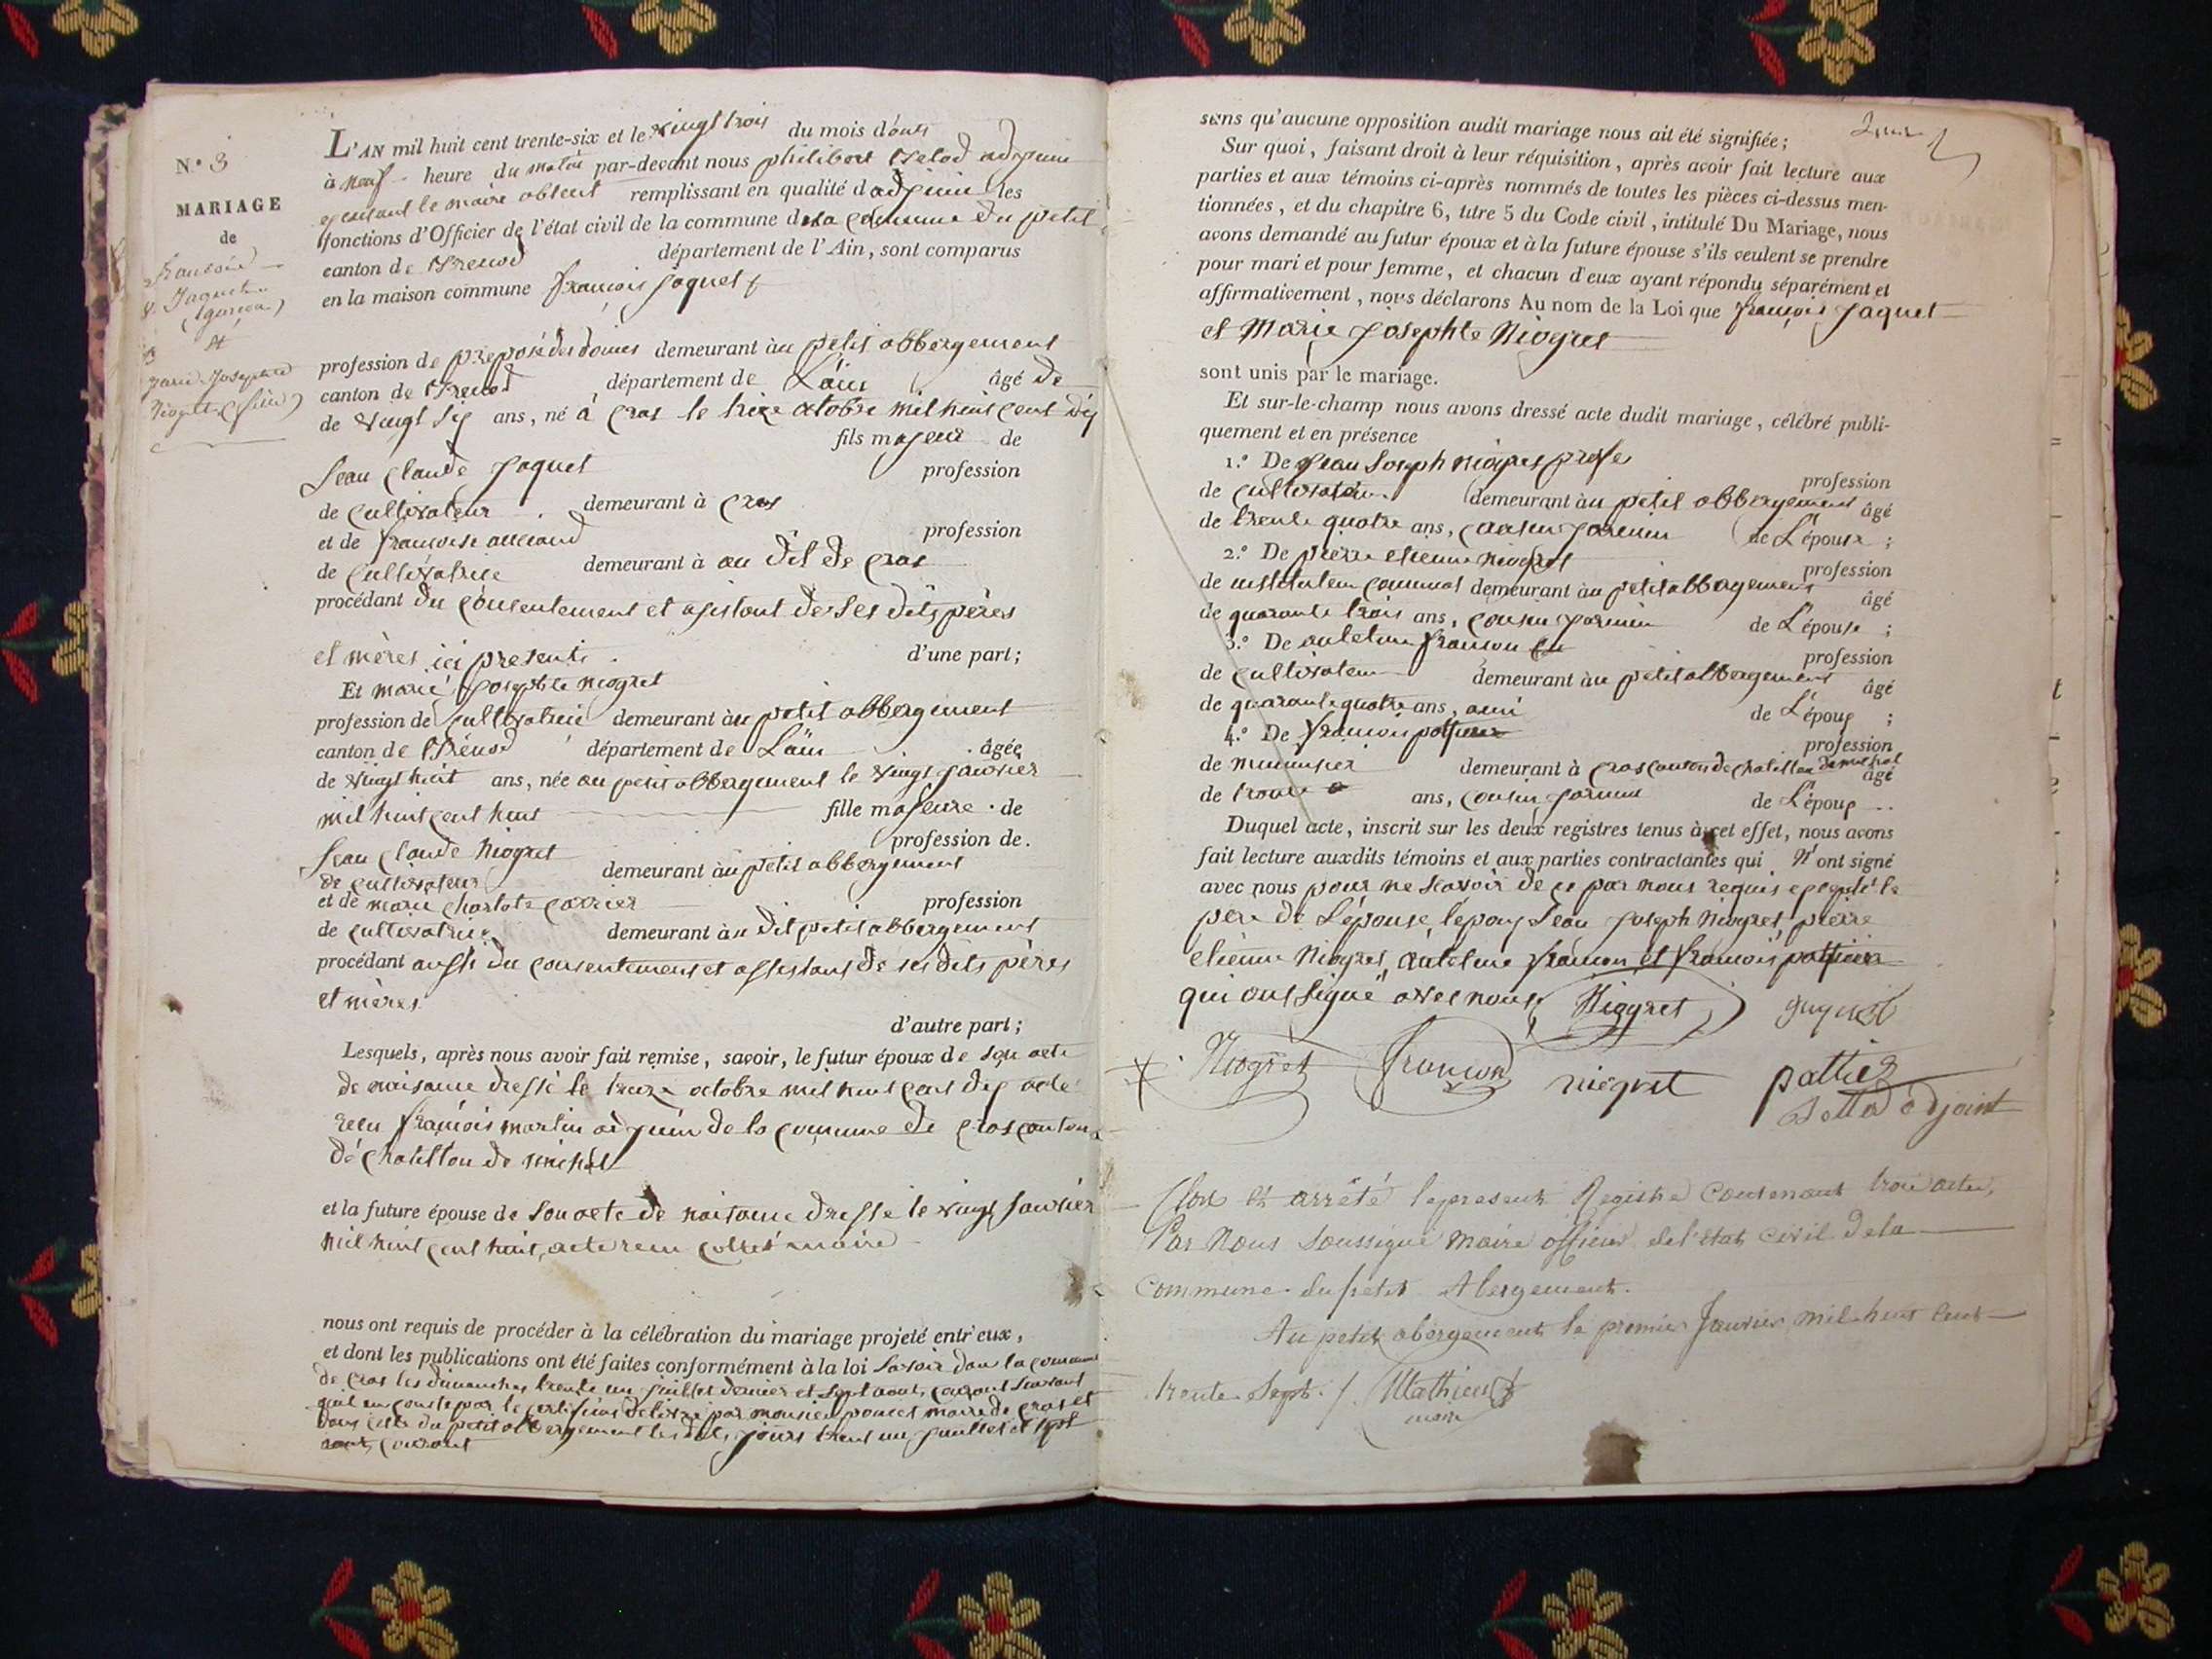 N.° 3
MARIAGE
de
françois
Jaquet
(garçon)
et
marie Josephte
Niogret (fille)
L'AN mil huit cent trente-six et le vingt trois du mois d'out
à neuf heure du matin par-devant nous philibert adjoint
le maire absent remplissant en qualité d adjoint les
fonctions d'Officier de l'état civil de la commune de la commune du petit
canton de Brenod département de l'Ain, sont comparus
en la maison commune françois jaquet
profession de preposé des doines demeurant àu petit abbergement
canton de Brenod département de Lain âgé de
de vingt six ans, né à cras le trize octobre mil huit cent dix
fils majeur de
Jean Claude jaquet profession
de cultivateur demeurant à cras
et de françoise profession
de cultivatrice demeurant à au dit de cras
procédant du consentement et asistant de ses dits pères
et mères ici presents d'une part;
Et marie josephte niogret
profession de cultivatrice demeurant àu petit abbergement
canton de Brénod département de Lain âgée
de vingt huit ans, née au petit abbergement le vingt janvier
mil huit cent huit fille majeure de
Jean Claude Niogret profession de.
de cultivateur demeurant àu petit abbergement
et de marie charlote carrier profession
de cultivatrice demeurant àu dit petit abbergement
procédant aussi du consentement et assistans de ses dits pères
et mères
d'autre part;
Lesquels, après nous avoir fait remise, savoir, le futur époux de son acte
de naisance dressé le treize octobre mil huit cent dix acte
recu françois martin adjoin de la commune de cras canton
de chatillon de michal
et la future épouse de son acte de naisance dressé le vingt janvier
mil huit cent huit, acte recu maire
nous ont requis de procéder à la célébration du mariage projeté entr'eux,
et dont les publications ont été faites conformément à la loi savoir dans la commune
de cras les dimanches trente un juillet dernier et sept aout, courant
par le certificat délivré par monsieur poncet maire de cras et
dans celle du petit abbergement les dits jours trent un juillet et sept
aout, courant
sans qu'aucune opposition audit mariage nous ait été signifiée;
Sur quoi, faisant droit à leur réquisition, après avoir fait lecture aux
parties et aux témoins ci-après nommés de toutes les pièces ci-dessus men-
tionnées, et du chapitre 6, titre 5 du Code civil, intitulé Du Mariage, nous
avons demandé au futur époux et à la future épouse s'ils veulent se prendre
pour mari et pour femme, et chacun d'eux ayant répondu séparément et
affirmativement, nous déclarons Au nom de la Loi que françois jaquet
et Marie josephte Niogret
sont unis par le mariage.
Et sur-le-champ nous avons dressé acte dudit mariage, célébré publi-
quement et en présence
1.° De Jean Joseph niogret profession
de cultivateur demeurant àu petit abbergement âgé
de trente quatre ans, cousin germin de L'épouse;
2.° De pierre etienne niogret profession
de instituteur communal demeurant àu petit abbergement âgé
de quarante trois ans, cousin germin de L'épouse;
3.° De antelme françon profession
de cultivateur demeurant àu petit abbergement âgé
de quarante quatre ans, ami de L'époux;
4.° De françois profession
de menusier demeurant à cras canton de chatillon de michal âgé
de trente ans, cousin germin de L'époux
Duquel acte, inscrit sur les deux registres tenus à cet effet, nous avons
fait lecture auxdits témoins et aux parties contractantes qui N'ont signé
avec nous pour ne savoir de ce par nous requis excepté le
père de L'épouse, l'époux Jean joseph Niogret, pierre
etienne Niogret, antelme françon et françois
qui ont signé avec nous Niogret
Niogret françon niogret pattier
adjoint
Clos et arrêté le present Registre contenant trois actes,
Par Nous Soussigné Maire officier de l'état civil de la
Commune du petit Abergement.
Au petit abergement le premier Janvier mil huit cent
trente Sept. Mathieu
maire